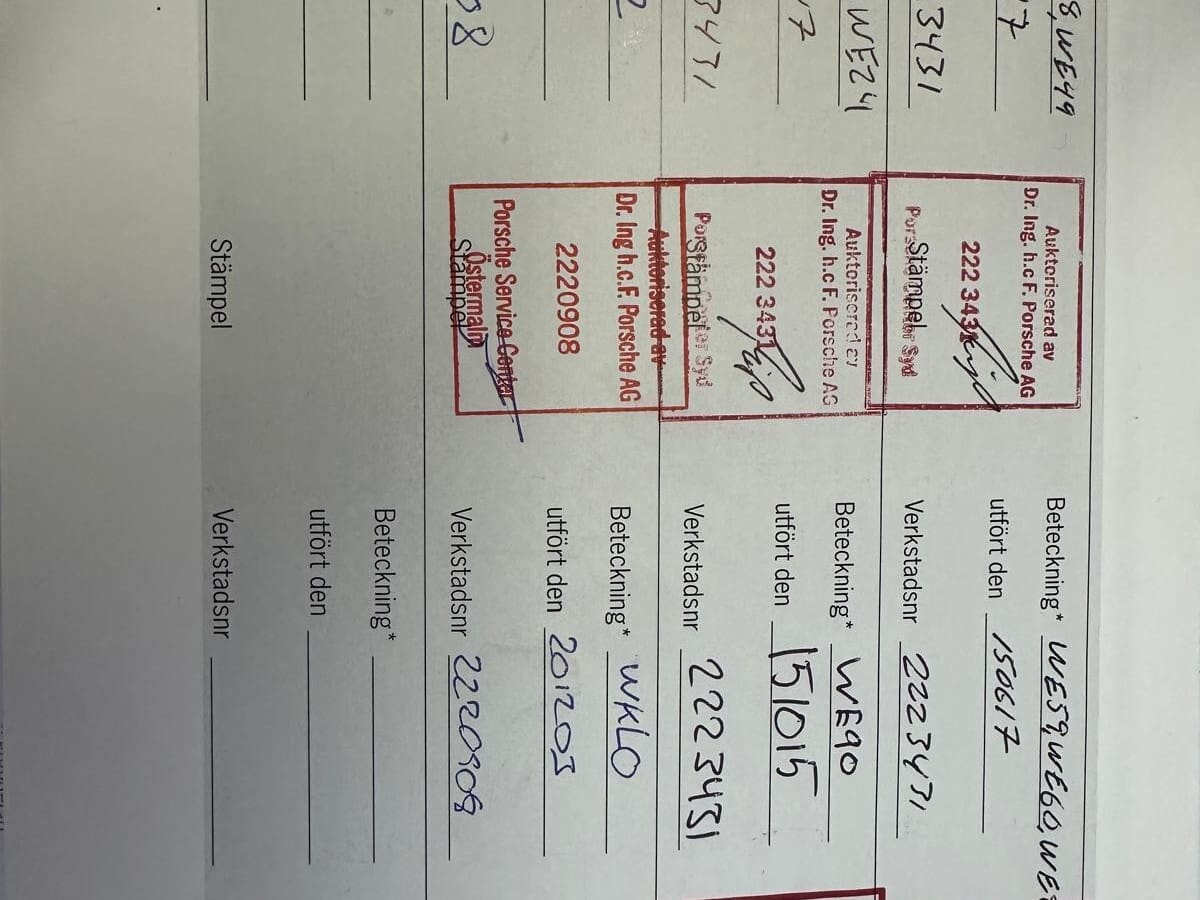 8,WE49
17
3431
Auktoriserad av
Dr. Ing. h.c F. Porsche AG
222 3431
Stämpel
Beteckning* WE59,WE60,WE
utfört den 150617
Verkstadsnr 2223431
WE24
7
3431
Auktoriserad av
Dr. Ing. h.c F. Porsche AG
222 3431
Porsche Center Syd
Stämpel
Beteckning* WE90
utfört den 151015
Verkstadsnr 2223431
2
08
Auktoriserad av
Dr. Ing h.c.F. Porsche AG
2220908
Porsche Service Center
Östermalm
Stämpel
Beteckning* WKLO
utfört den 201203
Verkstadsnr 2220908
Stämpel
Beteckning*
utfört den
Verkstadsnr